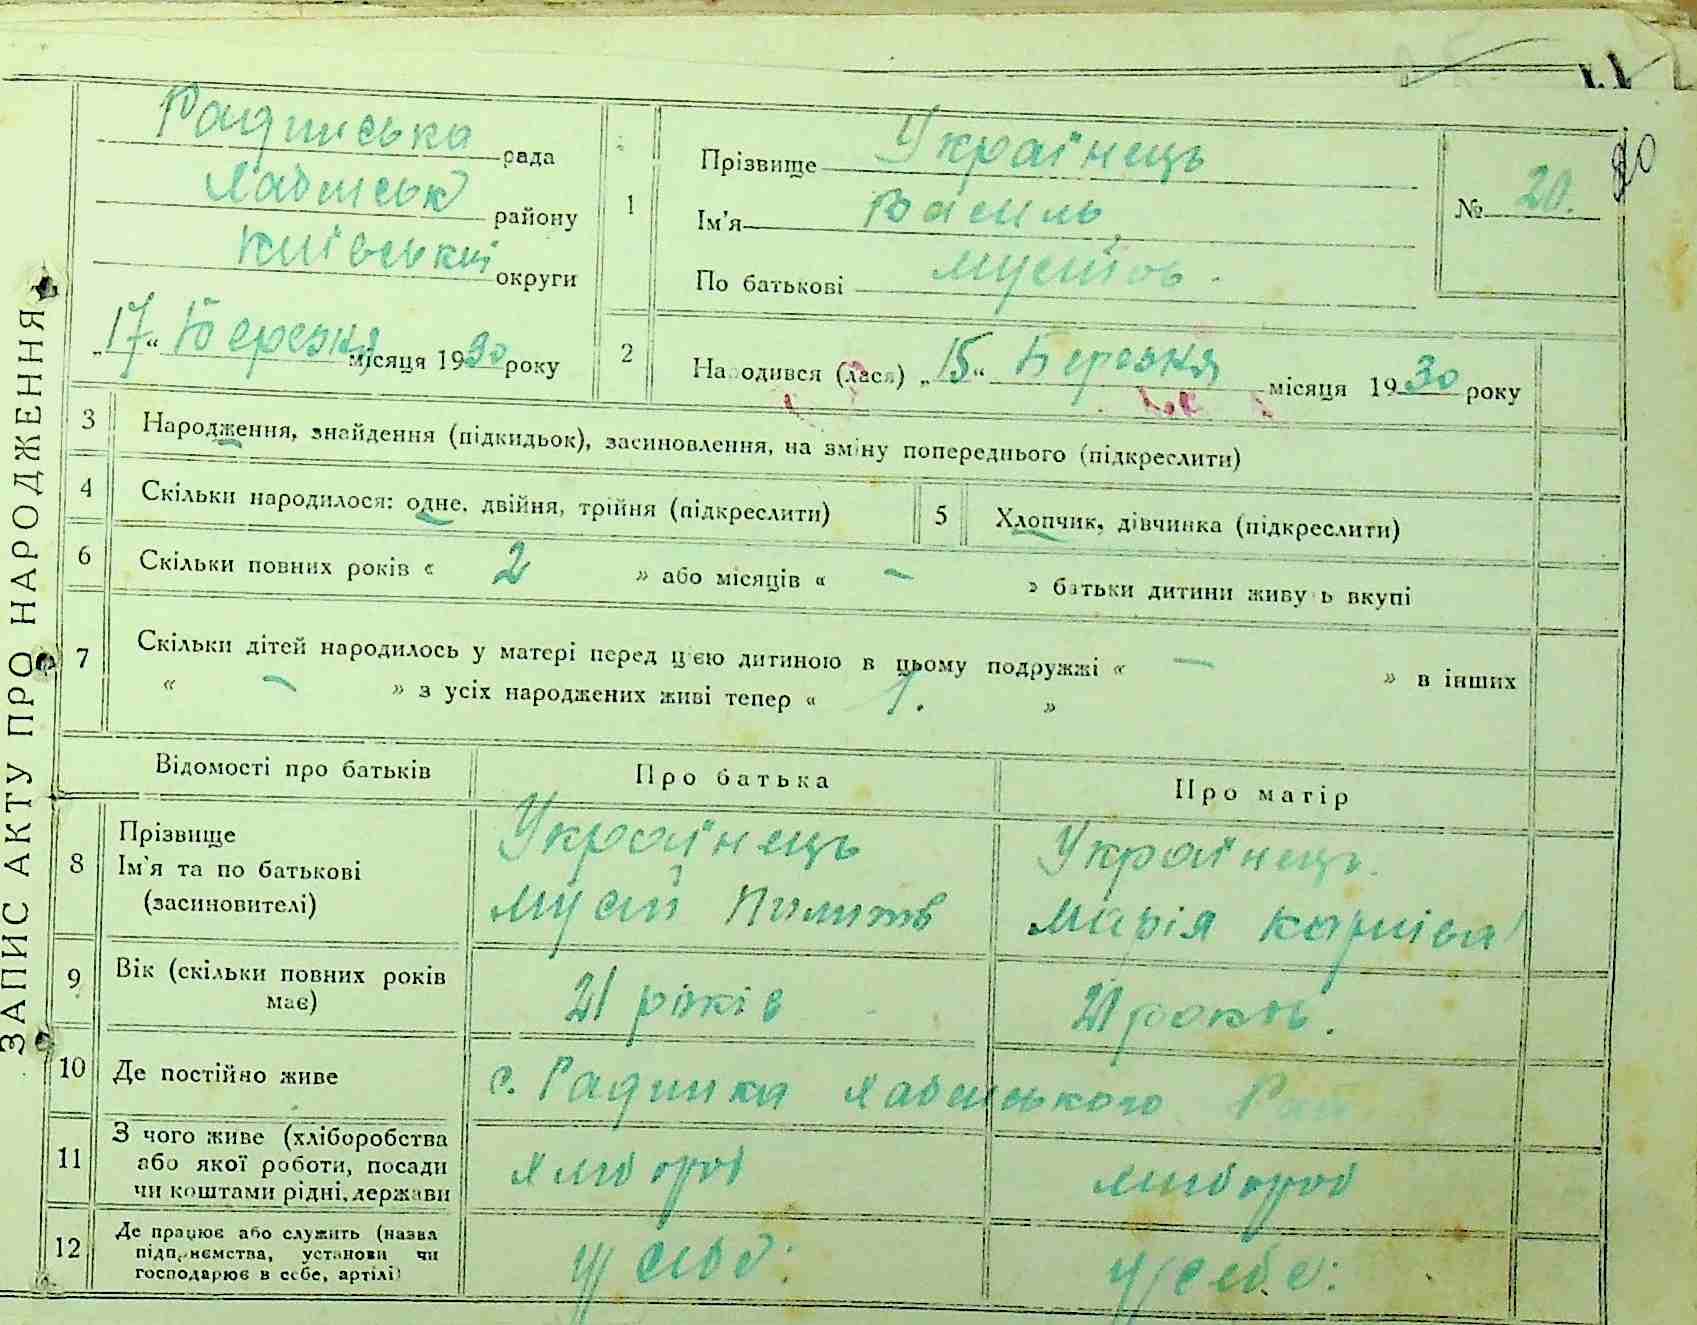 ЗАПИС АКТУ ПРО НАРОДЖЕННЯ
Радинська рада
району
округи
„17“ Березня місяця 1930 року
1
Прізвище Українець
Ім'я Василь
По батькові Мусіїов.
№ 20.
20
2
Народився (лася) „15“ Березня місяця 1930 року
3 Народження, знайдення (підкидьок), засиновлення, на зміну попереднього (підкреслити)
4 Скільки народилося: одне, двійня, трійня (підкреслити)
5 Хлопчик, дівчинка (підкреслити)
6 Скільки повних років « 2 » або місяців « – » батьки дитини живуть вкупі
7 Скільки дітей народилось у матері перед цією дитиною в цьому подружжі « – » в інших
« – » з усіх народжених живі тепер « 1. »
Відомості про батьків
Про батька
Про матір
8 Прізвище
Ім'я та по батькові
(засиновителі)
Українець
Мусій
Українець.
Марія
9 Вік (скільки повних років має)
21 років
21 роков.
10 Де постійно живе
с. Радинка Хабенського Рай
11 З чого живе (хліборобства
або якої роботи, посади
чи коштами рідні, держави
хлібороб
хлібороб
12 Де працює або служить (назва
підприємства, установи чи
господарює в себе, артілі)
у себе.
у себе.